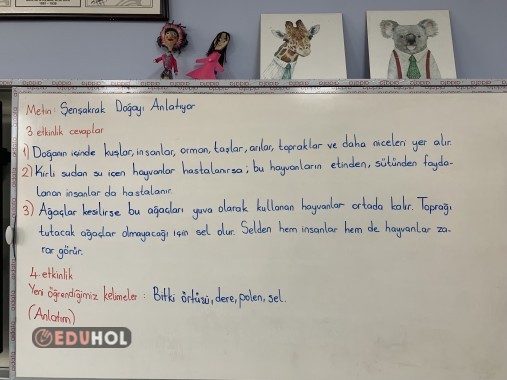 Metin: Şenşakrak Doğayı Anlatıyor
3. etkinlik cevaplar
1) Doğanın içinde kuşlar, insanlar, orman, taşlar, arılar, topraklar ve daha niceleri yer alır.
2) Kirli sudan su içen hayvanlar hastalanırsa; bu hayvanların etinden, sütünden fayda-
lanan insanlar da hastalanır.
3) Ağaçlar kesilirse bu ağaçları yuva olarak kullanan hayvanlar ortada kalır. Toprağı
tutacak ağaçlar olmayacağı için sel olur. Selden hem insanlar hem de hayvanlar za-
rar görür.
4. etkinlik
Yeni öğrendiğimiz kelimeler: Bitki örtüsü, dere, polen, sel.
(Anlatım)
EDUHOL